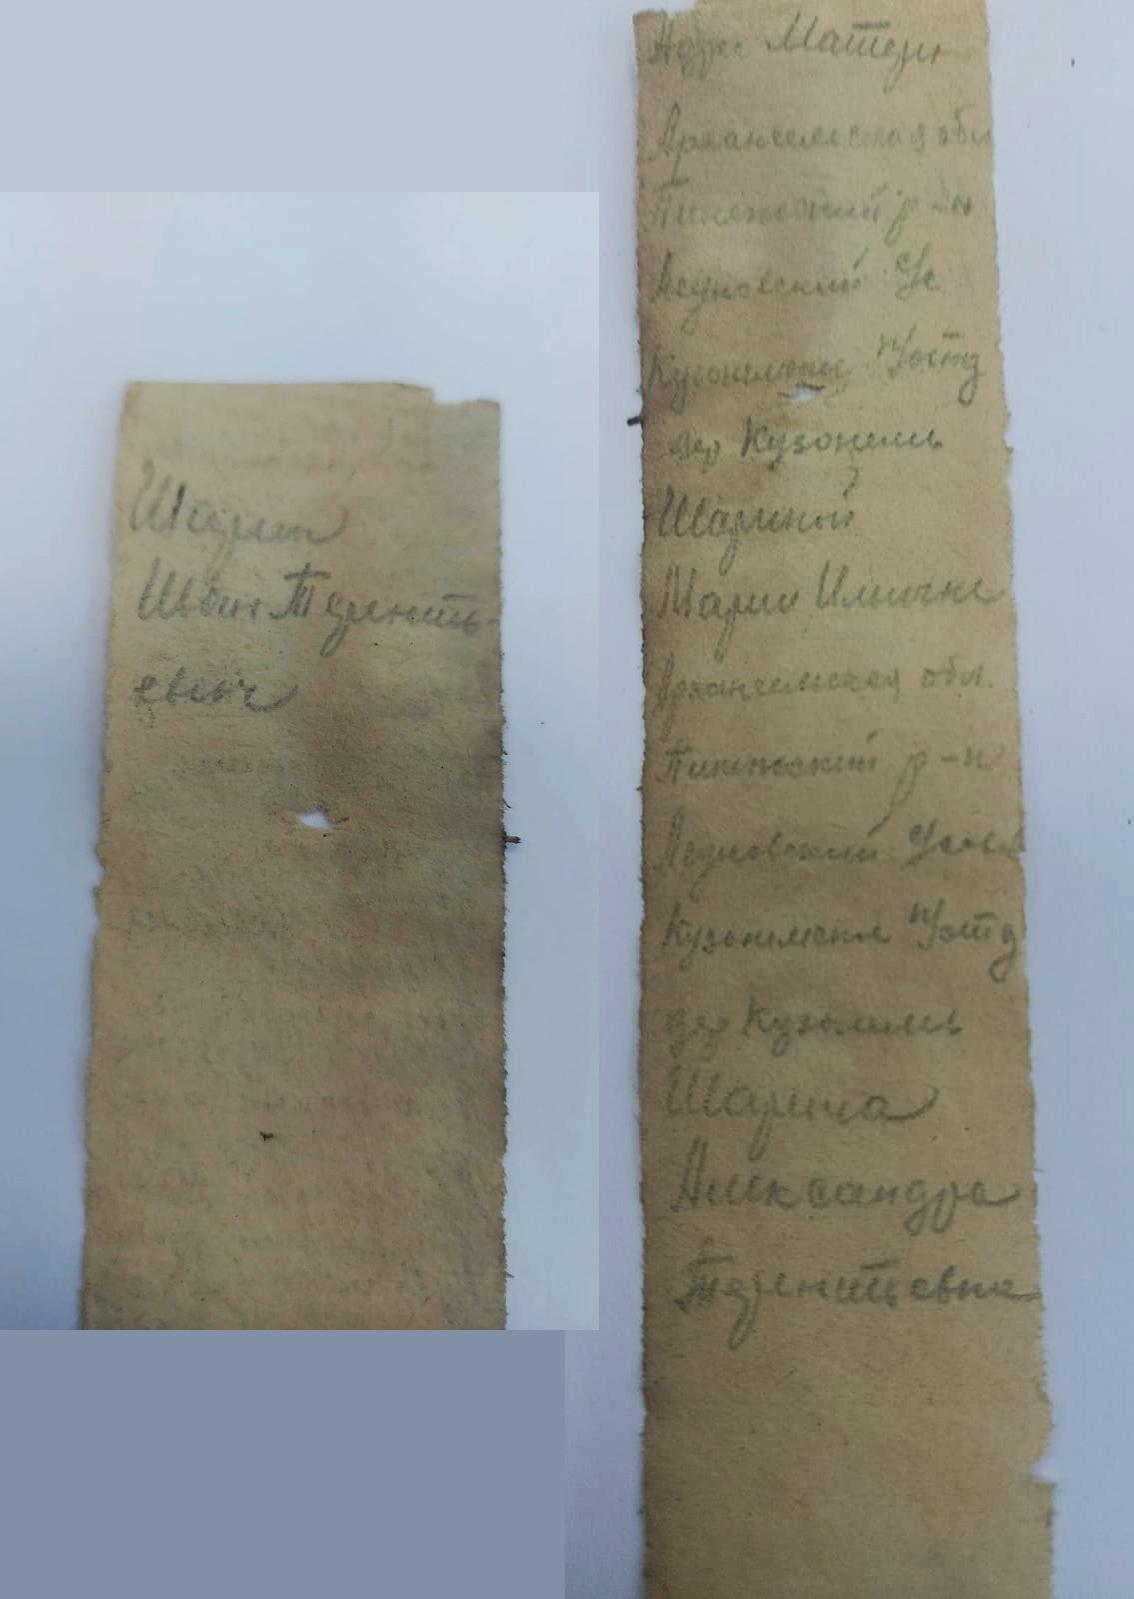 Шарин
Иван Теренть-
евич
Адрес Матери
Архангельская обл
Пинежский р-н
Асуновский с/с
Кузонемское п/отд
дер Кузонемь
Шариной
Марии Ильичне
Архангельская обл.
Пинежский р-н
Асуновский с/сов
Кузонемское п/отд
дер Кузонемь
Шарина
Александра
Терентьевна